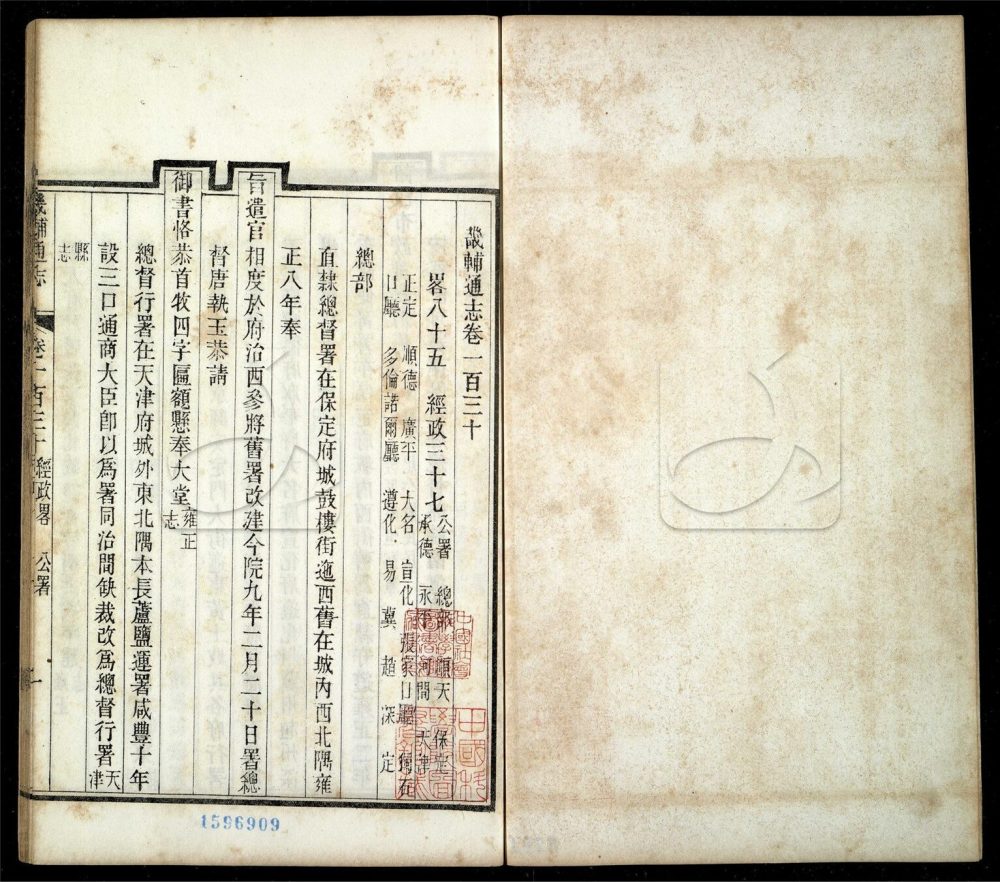 畿輔通志卷一百三十
畧八十五 經政三十七 公署 總部 順天 保定
承德 永平 河間 天津
正定 順德 廣平 大名 宣化 張家口廳 獨石
口廳 多倫諾爾廳 遵化 易 冀 趙 深 定
總部
直隸總督署在保定府城鼓樓街迤西舊在城內西北隅雍
正八年奉
旨遣官相度於府治西參將舊署改建今院九年二月二十日署總
督唐執玉恭請
御書恪恭首牧四字匾額懸奉大堂 雍正
志
總督行署在天津府城外東北隅本長蘆鹽運署咸豐十年
設三口通商大臣卽以爲署同治間缺裁改爲總督行署 天
津
縣
志
畿輔通志 卷一百三十 經政畧 公署 一
1596909